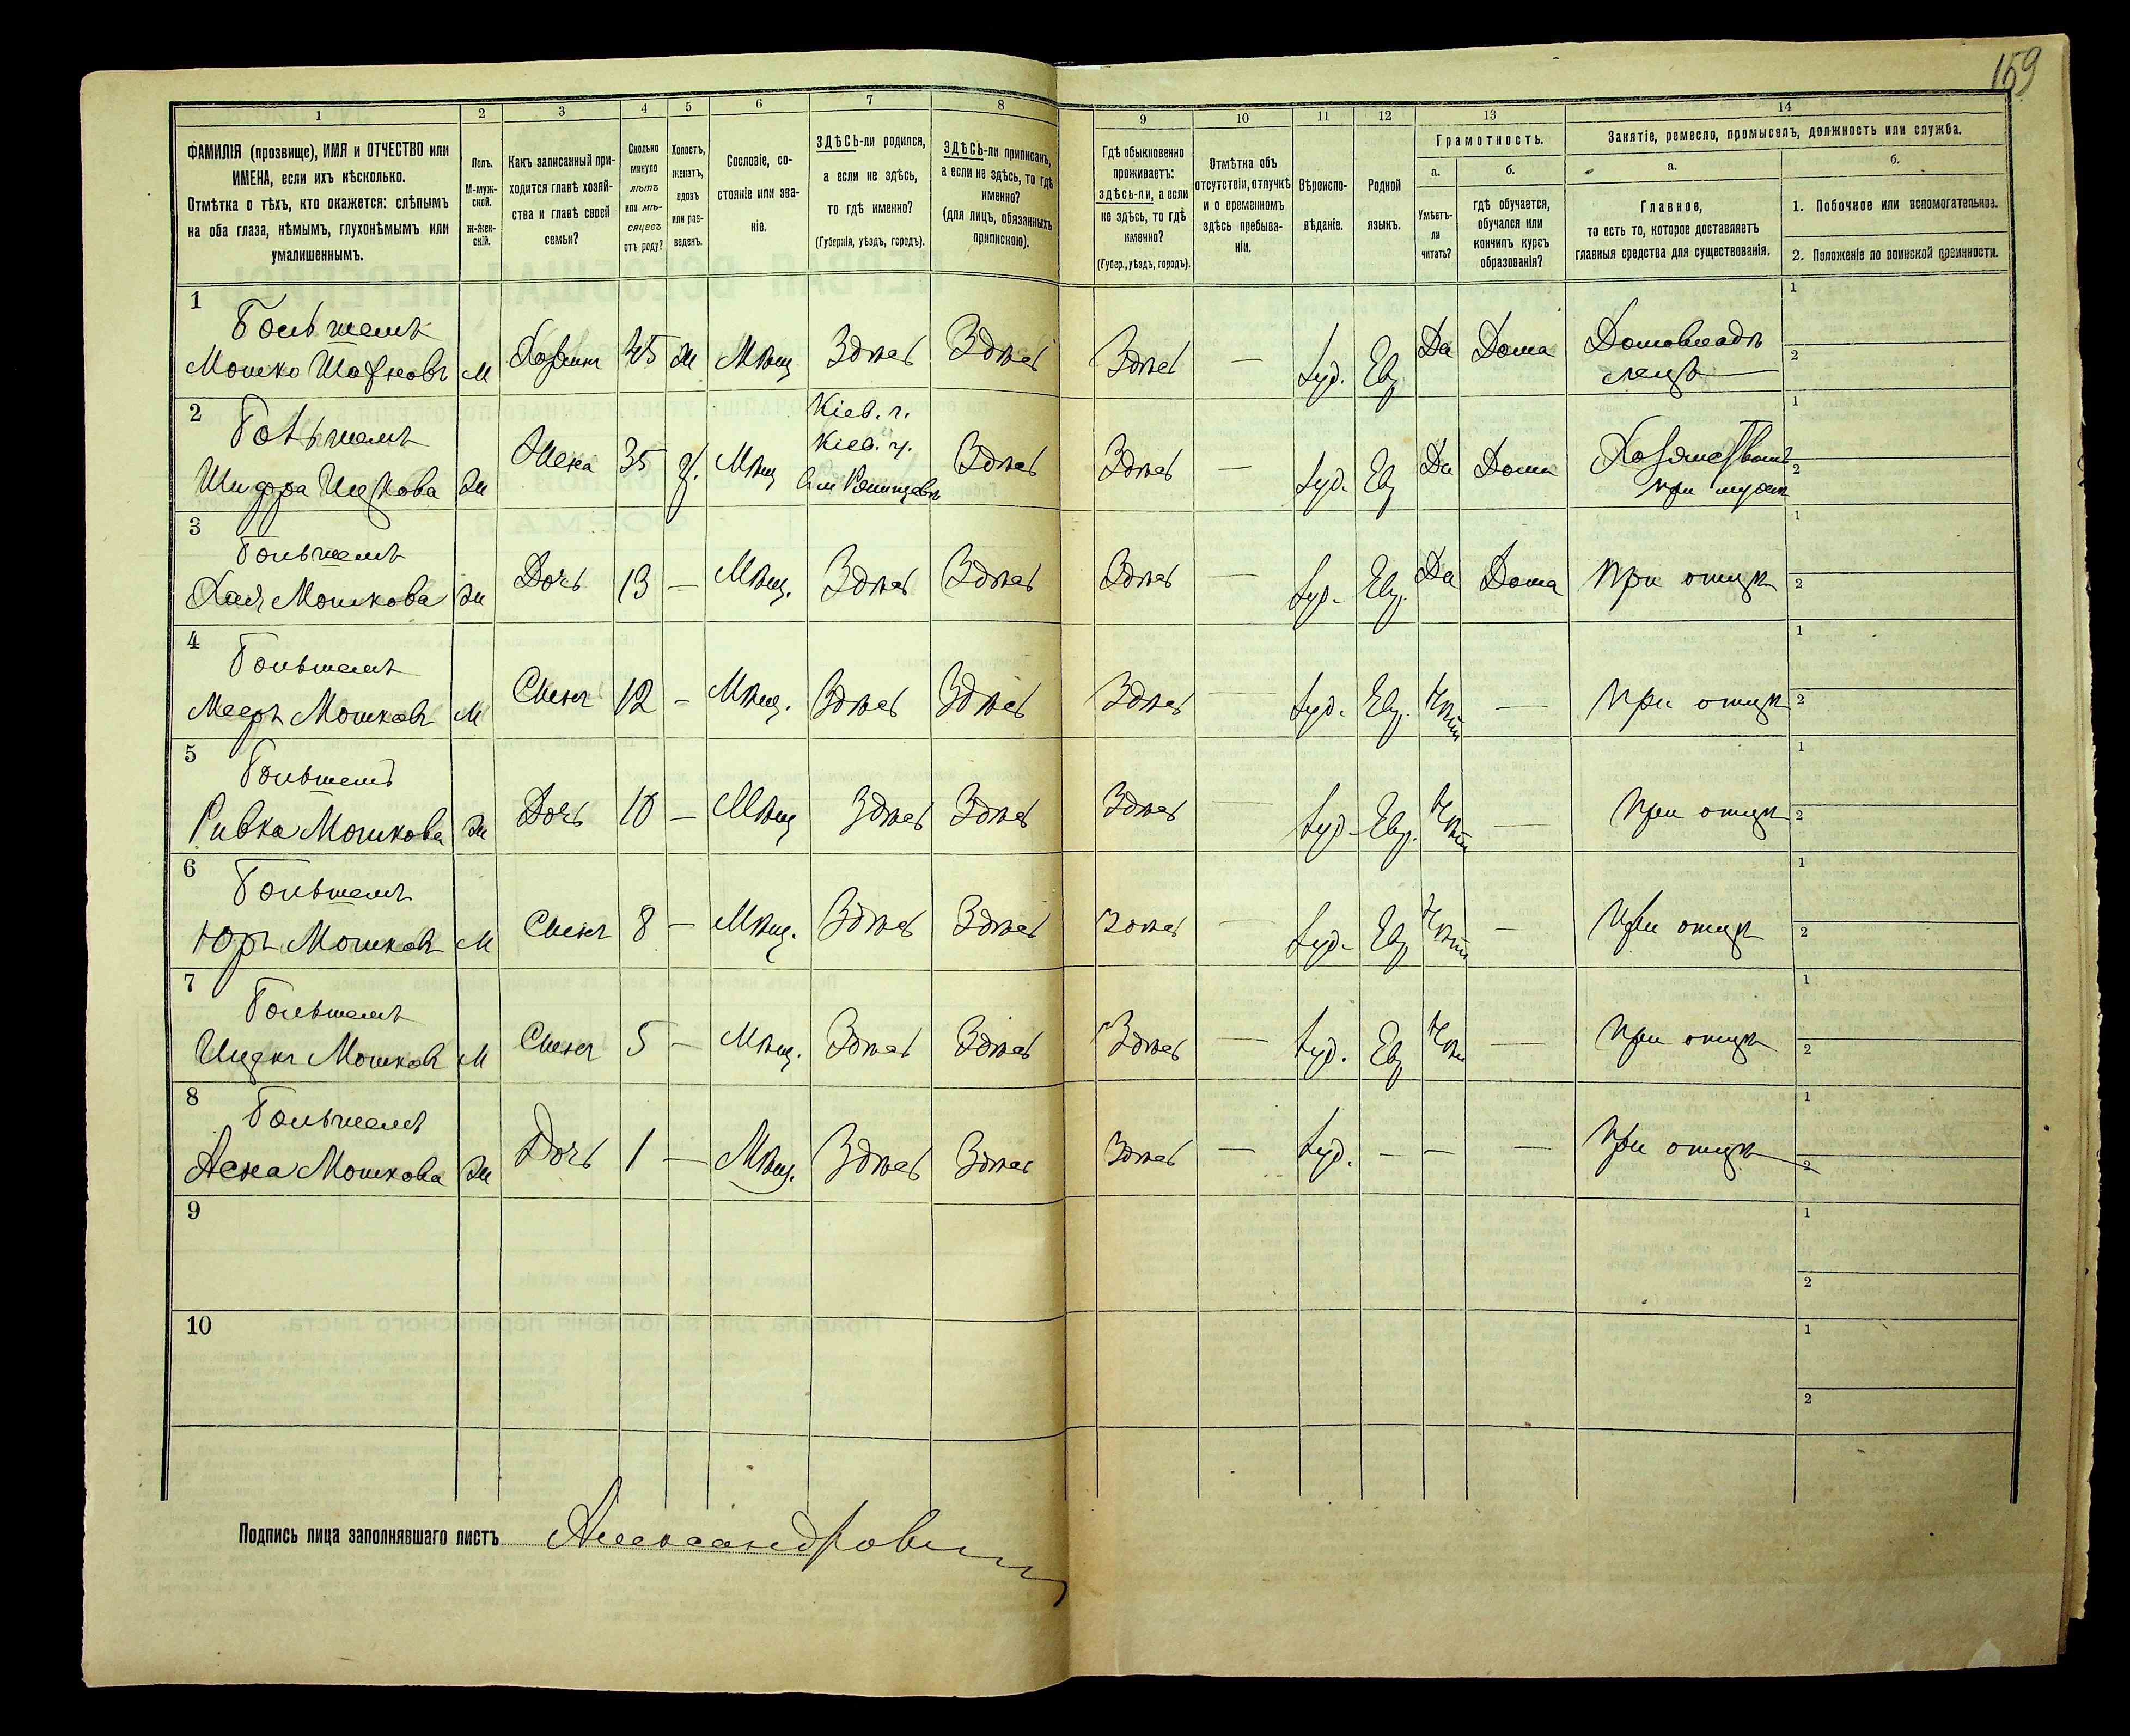 159
1
2
3
4
5
6
7
8
9
10
11
12
13
14
ФАМИЛІЯ (прозвище), ИМЯ и ОТЧЕСТВО или
ИМЕНА, если ихъ нѣсколько.
Отмѣтка о тѣхъ, кто окажется: слѣпымъ
на оба глаза, нѣмымъ, глухонѣмымъ или
умалишеннымъ.
Полъ.
М-муж-
ской.
ж-жен-
скій.
Какъ записанный при-
ходится главѣ хозяй-
ства и главѣ своей
семьи?
Сколько
минуло
лѣтъ
или мѣ-
сяцевъ
отъ роду?
Холостъ,
женатъ,
вдовъ
или раз-
веденъ.
Сословіе, со-
стояніе или зва-
ніе.
ЗДѢСЬ-ли родился,
а если не здѣсь,
то гдѣ именно?
(Губернія, уѣздъ, городъ).
ЗДѢСЬ-ли приписанъ,
а если не здѣсь, то гдѣ
именно?
(для лицъ, обязанныхъ
припискою).
Гдѣ обыкновенно
проживаетъ:
здѣсь-ли, а если
не здѣсь, то гдѣ
именно?
(Губер., уѣздъ, городъ).
Отмѣтка объ
отсутствіи, отлучкѣ
и о временномъ
здѣсь пребыва-
ніи.
Вѣроиспо-
вѣданіе.
Родной
языкъ.
Грамотность.
а.
Умѣетъ-
ли
читать?
б.
гдѣ обучается,
обучался или
кончилъ курсъ
образованія?
Занятіе, ремесло, промыселъ, должность или служба.
а.
Главное,
то есть то, которое доставляетъ
главныя средства для существованія.
б.
1. Побочное или вспомогательное.
2. Положеніе по воинской повинности.
1
Мошко
М
45
Мѣщ
Здѣсь
Здѣсь
Здѣсь
—
Іуд.
Евр
Да
Дома
Домовладѣ
лецъ
1
2
2
Шифра
Жена
35
Мѣщ
Кіев. г.
Кіев. у.
Здѣсь
Здѣсь
—
Іуд.
Евр
Да
Дома
при мужѣ
1
2
3
Хая Мошкова
Дочь
13
—
Мѣщ.
Здѣсь
Здѣсь
Здѣсь
—
Іуд.
Евр.
Да
Дома
При отцѣ
1
2
4
Мееръ Мошковъ
М
Сынъ
12
—
Мѣщ.
Здѣсь
Здѣсь
Здѣсь
—
Іуд.
Евр.
Нѣтъ
—
При отцѣ
1
2
5
Ривка Мошкова
Дочь
10
—
Мѣщ
Здѣсь
Здѣсь
Здѣсь
—
Іуд.
Евр.
Нѣтъ
—
При отцѣ
1
2
6
Мошковъ
М
Сынъ
8
—
Мѣщ.
Здѣсь
Здѣсь
Здѣсь
—
Іуд.
Евр
Нѣтъ
—
При отцѣ
1
2
7
Мошковъ
М
Сынъ
5
—
Мѣщ.
Здѣсь
Здѣсь
Здѣсь
—
Іуд.
Евр
Нѣтъ
—
При отцѣ
1
2
8
Мошкова
Дочь
1
—
Мѣщ.
Здѣсь
Здѣсь
Здѣсь
—
Іуд.
—
—
—
При отцѣ
1
2
9
1
2
10
1
2
Подпись лица заполнявшаго листъ